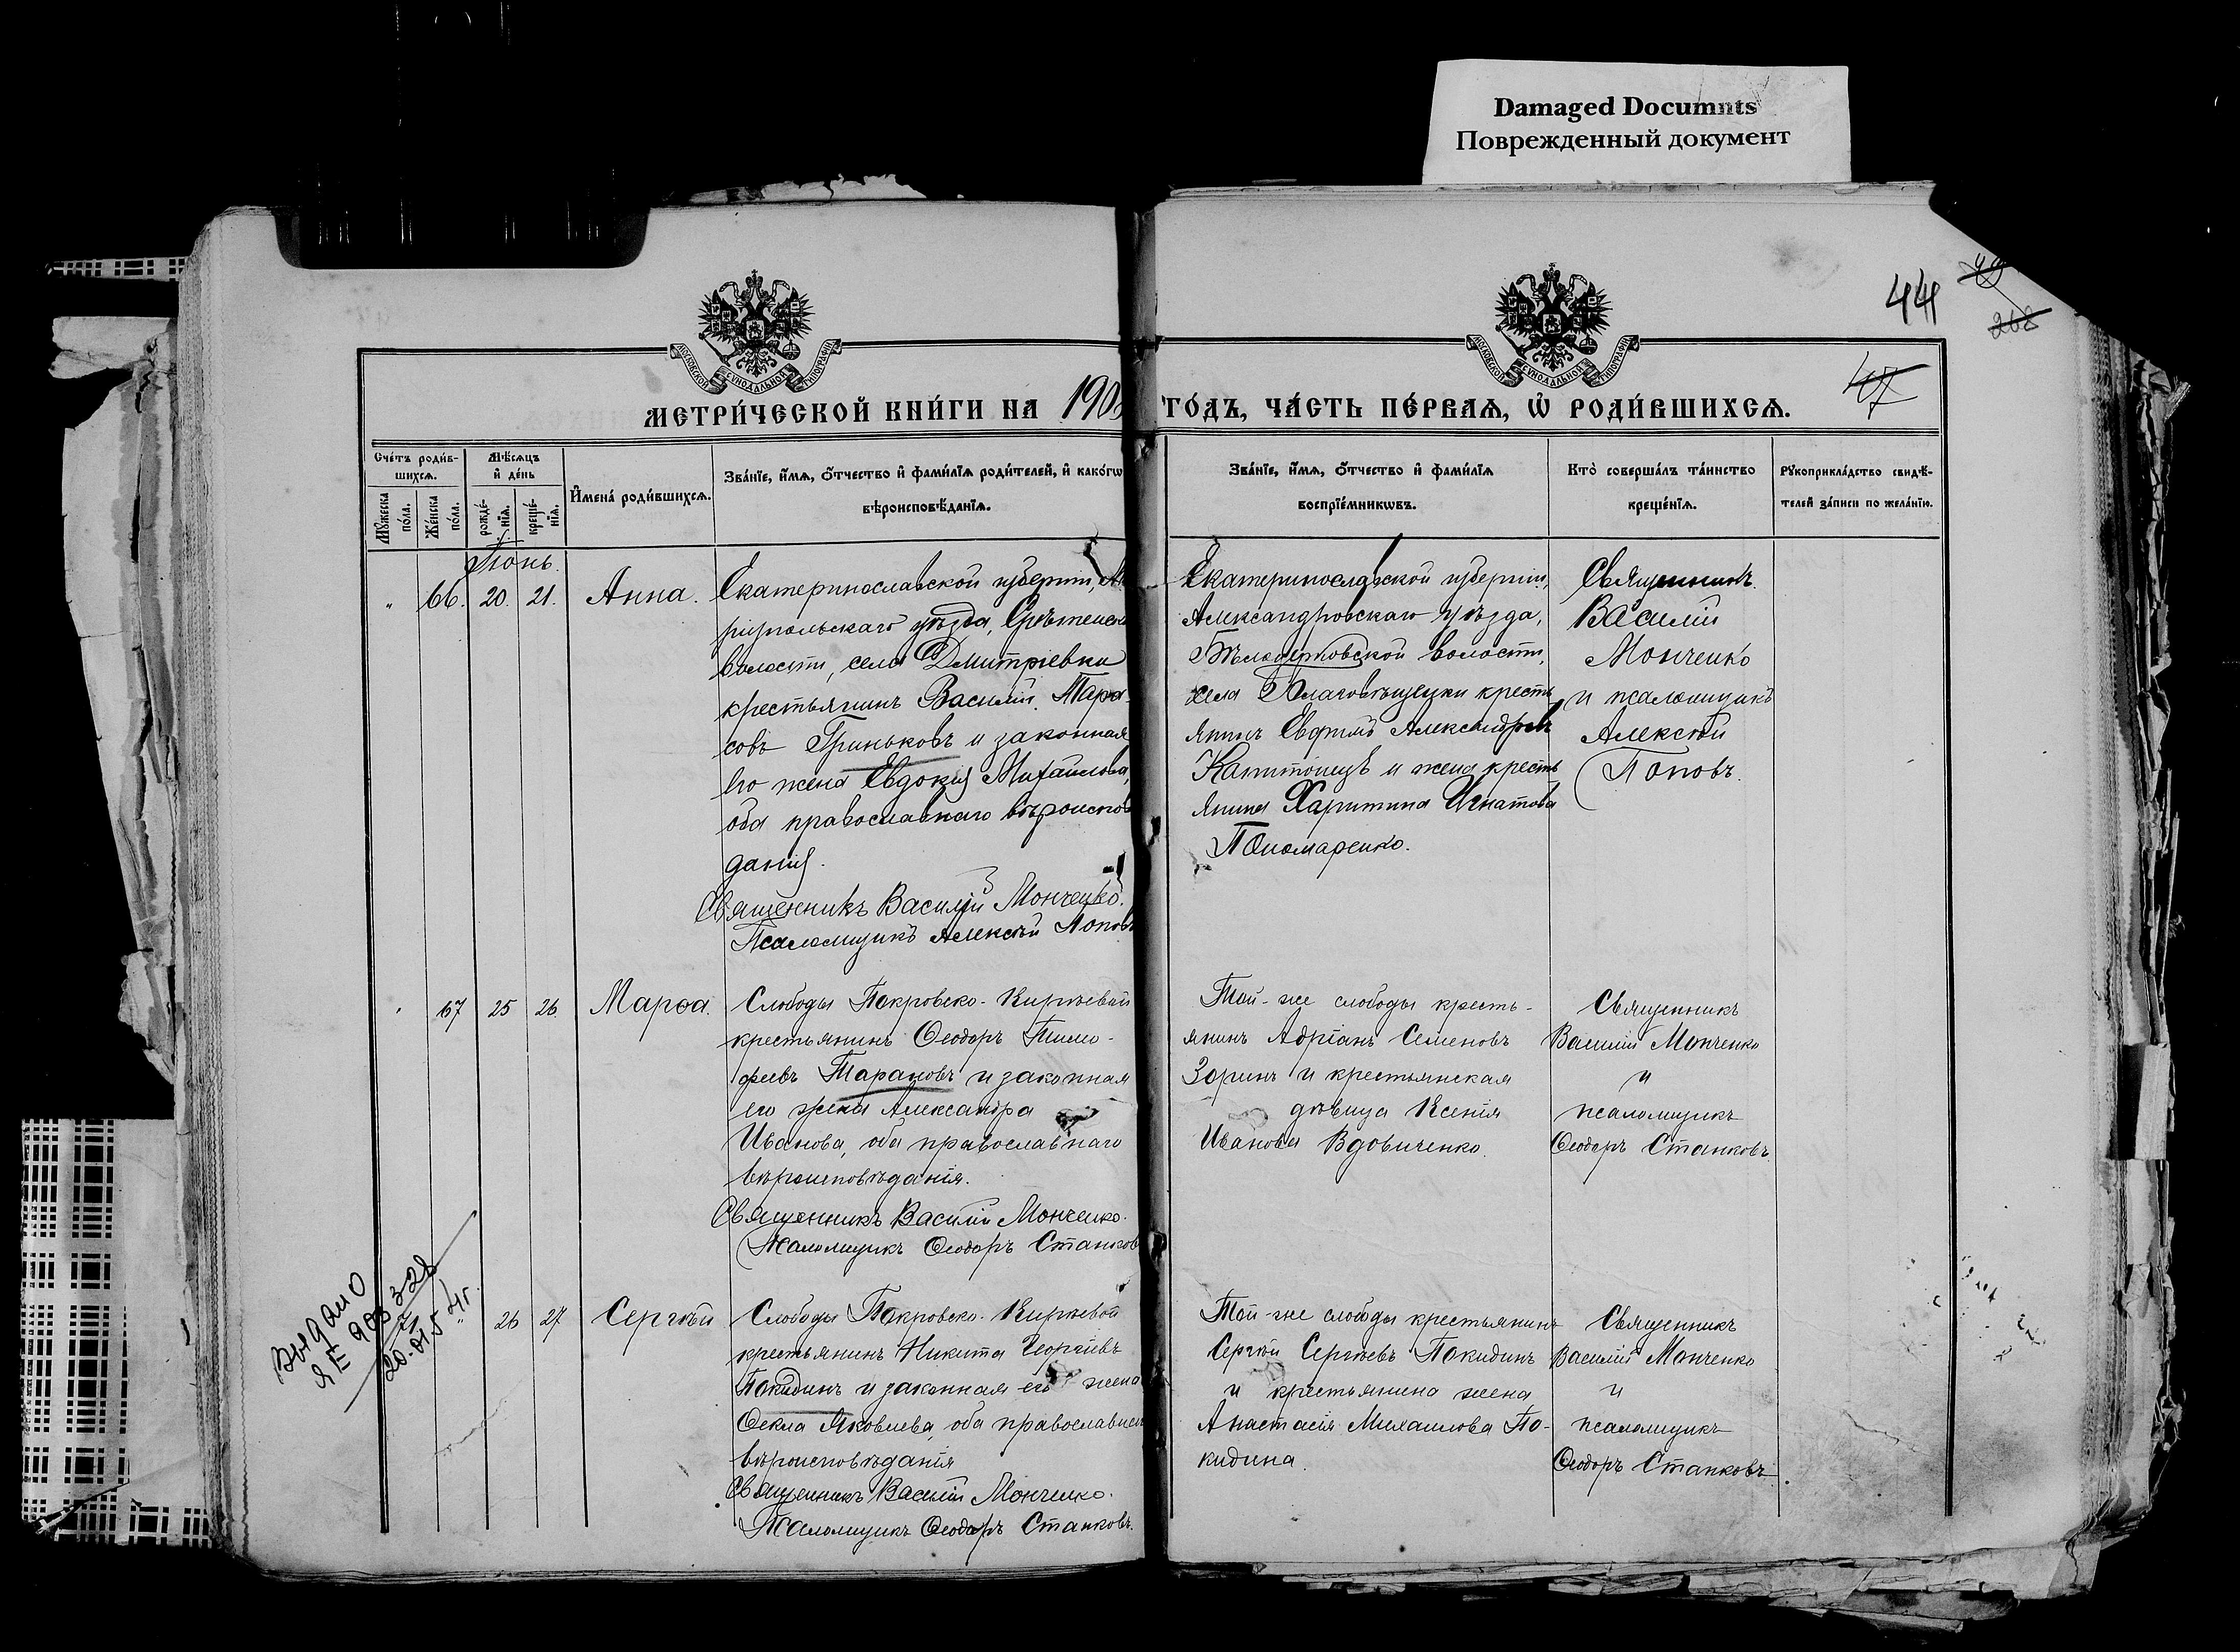 Damaged Documnts
Поврежденный документ
44
49
268
47
МОСКОВСКОЙ СѴНОДАЛЬНОЙ ТИПОГРАФІИ
МОСКОВСКОЙ СѴНОДАЛЬНОЙ ТИПОГРАФІИ
МЕТРИ́ЧЕСКОЙ КНИ́ГИ НА 190
ГО́ДЪ, ЧА́СТЬ ПЕ́РВАѦ, Ѡ҆ РОДИ́ВШИХСѦ.
Сче́тъ роди́в-
шихсѧ.
Мꙋ́жеска
по́ла.
Же́нска
по́ла.
Мѣ́сѧцъ
и҆ де́нь
рожде́-
нїѧ.
креще́-
нїѧ.
И҆мена̀ роди́вшихсѧ.
Зва́нїе, и҆́мѧ, ѻ҆́тчество и҆ фами́лїѧ роди́телей, и҆ како́гѡ
вѣроисповѣ́данїѧ.
Зва́нїе, и҆́мѧ, ѻ҆́тчество и҆ фами́лїѧ
воспрїе́мникѡвъ.
Кто̀ соверша́лъ та́инство
креще́нїѧ.
Рꙋкоприкла́дство свидѣ́-
телей за́писи по жела́нїю.
Іюнь.
" 66. 20. 21. Анна.
Екатеринославской губерніи, Ма
ріупольскаго уѣзда, Срѣтенск
волости, села Дмитріевки
крестьянинъ Василій Тара-
совъ Гриньковъ и законная
его жена Евдокія Михаилова,
оба православнаго вѣроиспов
данія.
Священникъ Василій Монченко.
Псаломщикъ Алексѣй Поповъ
Екатеринославской губерніи,
Александровскаго уѣзда,
волости,
села Благовѣщенки кресть
янинъ Евфимъ Александровъ
и жена кресть
янина Харитина Игнатова
Пономаренко.
Священникъ
Василій
Монченко
и псаломщикъ
Алексѣй
Поповъ.
" 67 25 26. Марѳа.
Слободы Покровско-Кирѣевой
крестьянинъ Ѳеодоръ Тимо-
феевъ Тарановъ и законная
его жена Александра
Иванова, оба православнаго
вѣроисповѣданія.
Священникъ Василій Мончинко.
Псаломщикъ Ѳеодоръ Станков
Той-же слободы кресть-
янинъ Адріанъ Семеновъ
Зоринъ и крестьянская
дѣвица Ксенія
Иванова Вдовиченко.
Священникъ
Василій Мончинко
и
псаломщикъ
Ѳеодоръ Станковъ.
Выдано
ЯЕ 908328
20.01.54г.
" 26 27 Сергѣй
Слободы Покровско-Кирѣевой
крестьянинъ Никита Георгіевъ
Покидинъ и законная его жена
Ѳекла Яковлева, оба православнаго
вѣроисповѣданія
Священникъ Василій Мончинко.
Псаломщикъ Ѳеодоръ Станковъ.
Той-же слободы крестьянинъ
Сергѣй Сергѣевъ Покидинъ
и крестьянина жена
Анастасія Михаилова По-
кидина.
Священникъ
Василій Мончинко
и
псаломщикъ
Ѳеодоръ Станковъ.